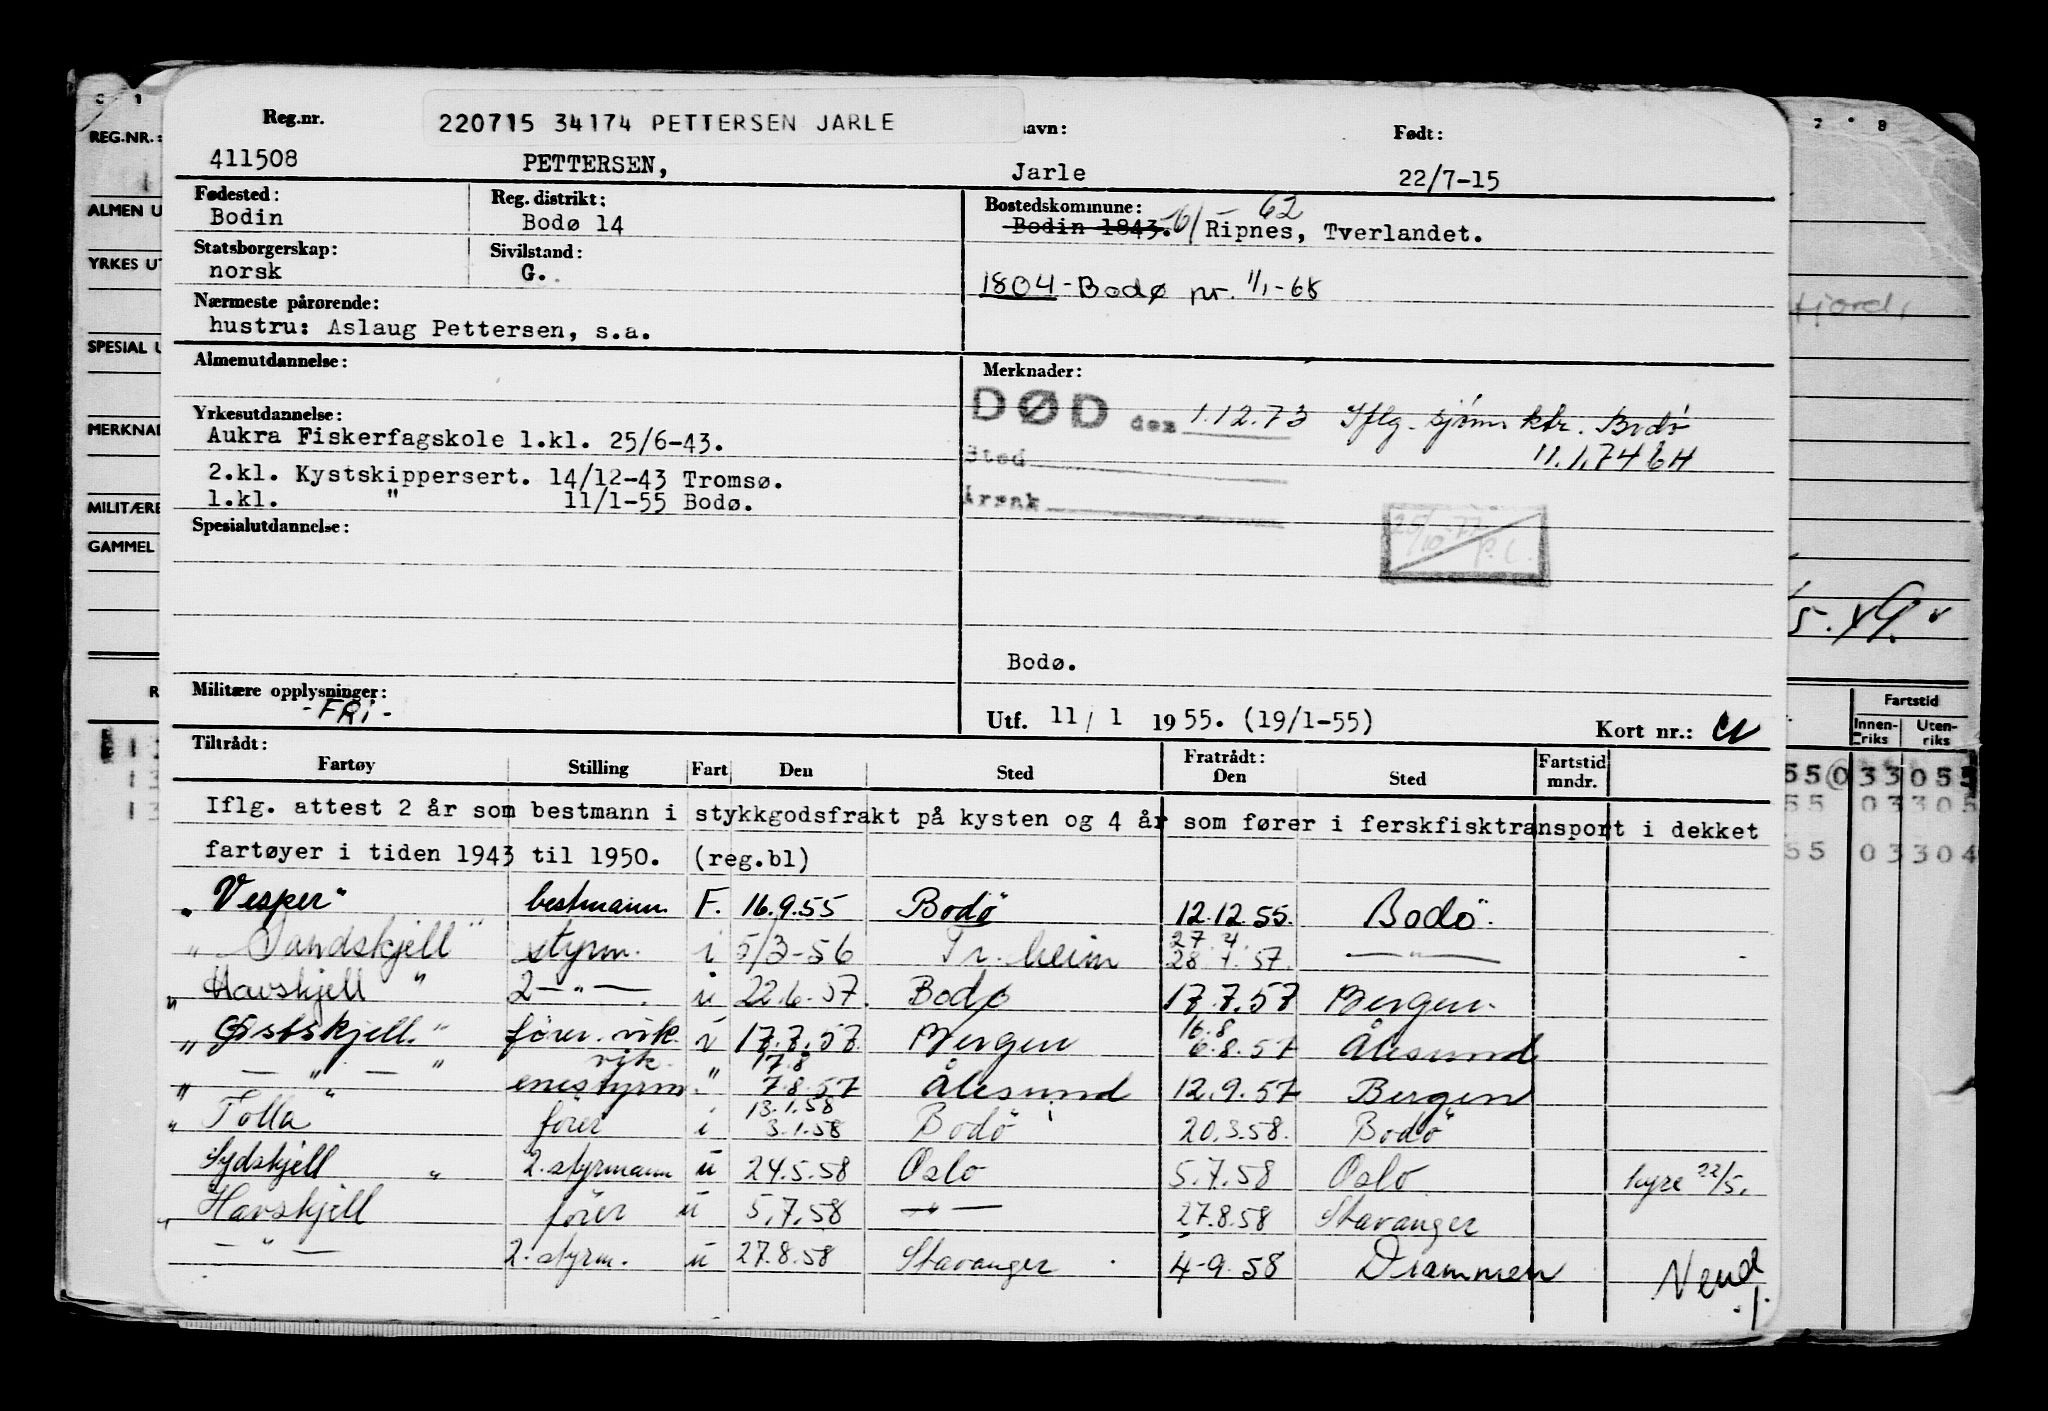 Reg.nr.
220715 34174 PETTERSEN JARLE
navn:
Født:
411508 PETTERSEN, Jarle 22/7-15
Fødested: Reg. distrikt: Bostedskommune:
Bodin Bodø 14 Bodin 1843. 6/ - 62 Ripnes, Tverlandet.
Statsborgerskap: Sivilstand:
norsk G. 1804 - Bodø pr. 1/1-68
Nærmeste pårørende:
hustru: Aslaug Pettersen, s.a.
Almenutdannelse:
Merknader:
DØD den 1.12.73 Iflg. sjøm. ktr. Bodø
11.1.74 bH
Sted
Årsak
25/10-77 P.L.
Yrkesutdannelse:
Aukra Fiskerfagskole 1.kl. 25/6-43.
2.kl. Kystskippersert. 14/12-43 Tromsø.
1.kl. " 11/1-55 Bodø.
Spesialutdannelse:
Bodø.
Militære opplysninger:
- FRi -
Utf. 11/1 1955. (19/1-55) Kort nr.:
Tiltrådt: Fratrådt:
Fartøy Stilling Fart Den Sted Den Sted Fartstid mndr.
Iflg. attest 2 år som bestmann i stykkgodsfrakt på kysten og 4 år som fører i ferskfisktransport i dekket
fartøyer i tiden 1943 til 1950. (reg.bl)
"Vesper" bestmann F. 16.9.55 Bodö 12.12.55. Bodö.
"Sandskjell" styrm. i 5/3-56 Tr.heim 27.4. 28.4.57. — " —
"Havskjell" 2 — " —. u 22.6.57. Bodø 17.7.57 Bergen.
"Østskjell" fører. vik. u 17.7.57. Bergen 16.8 6.8.57 Ålesund
" — " — " vik. enestyrm. " 17.8 7.8.57 Ålesund 12.9.57 Bergen
"Tolla" fører i 13.1.58 3.1.58 Bodö 20.3.58. Bodö
Sydskjell " 2. styrmann u 24.5.58 Oslo 5.7.58 Oslo hyre 22/5.
"Havskjell fører u 5.7.58 — " — 27.8.58 Stavanger
— " — 2. styrm. u 27.8.58 Stavanger 4-9.58 Drammen
Vend
REG.NR.:
ALMEN U
YRKES UT
SPESIAL U
MERKNAD
MILITÆRE
GAMMEL
R
7 8
fjord,
5.
Fartstid
Innen-
riks
Uten-
riks
55 0 33 055
55 03 305
55 03 304